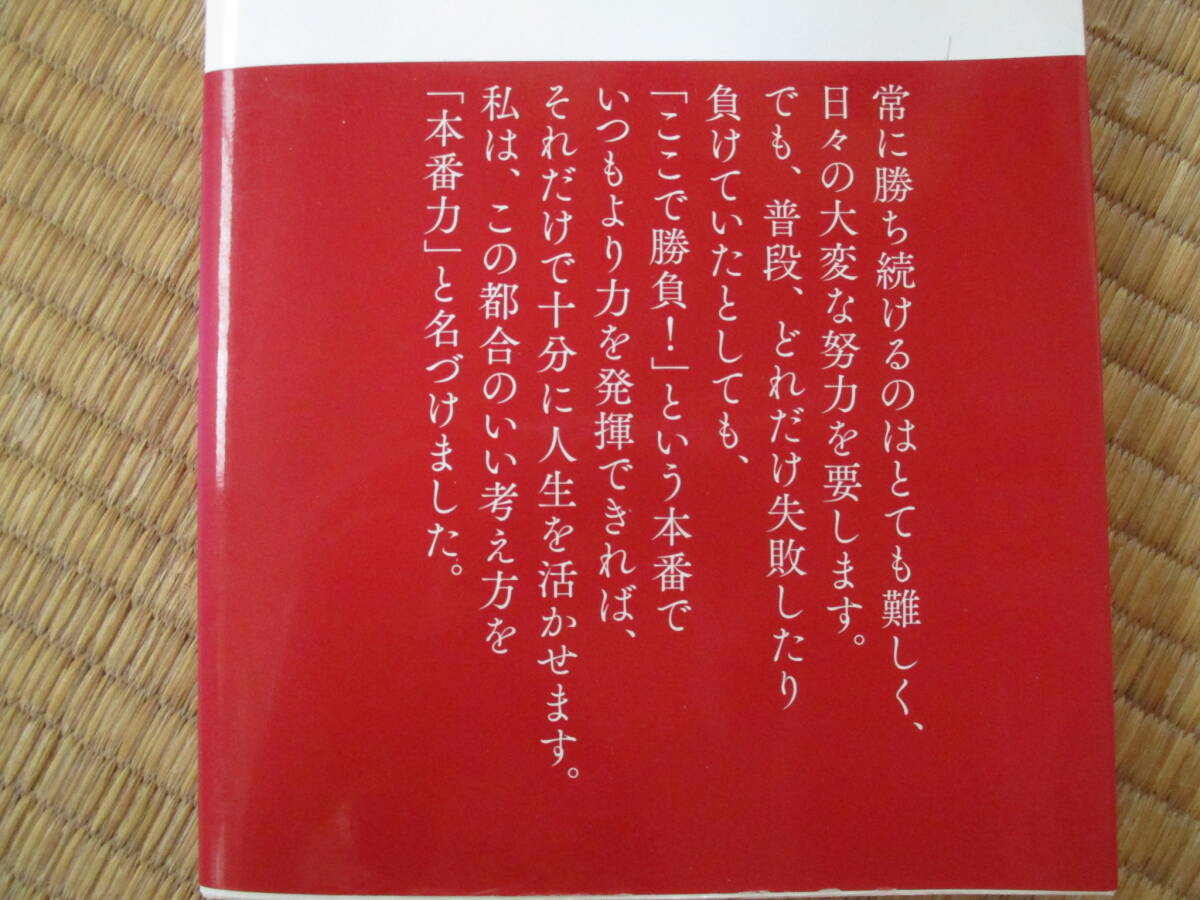 常に勝ち続けるのはとても難しく、
日々の大変な努力を要します。
でも、普段、どれだけ失敗したり
負けていたとしても、
「ここで勝負！」という本番で
いつもより力を発揮できれば、
それだけで十分に人生を活かせます。
私は、この都合のいい考え方を
「本番力」と名づけました。